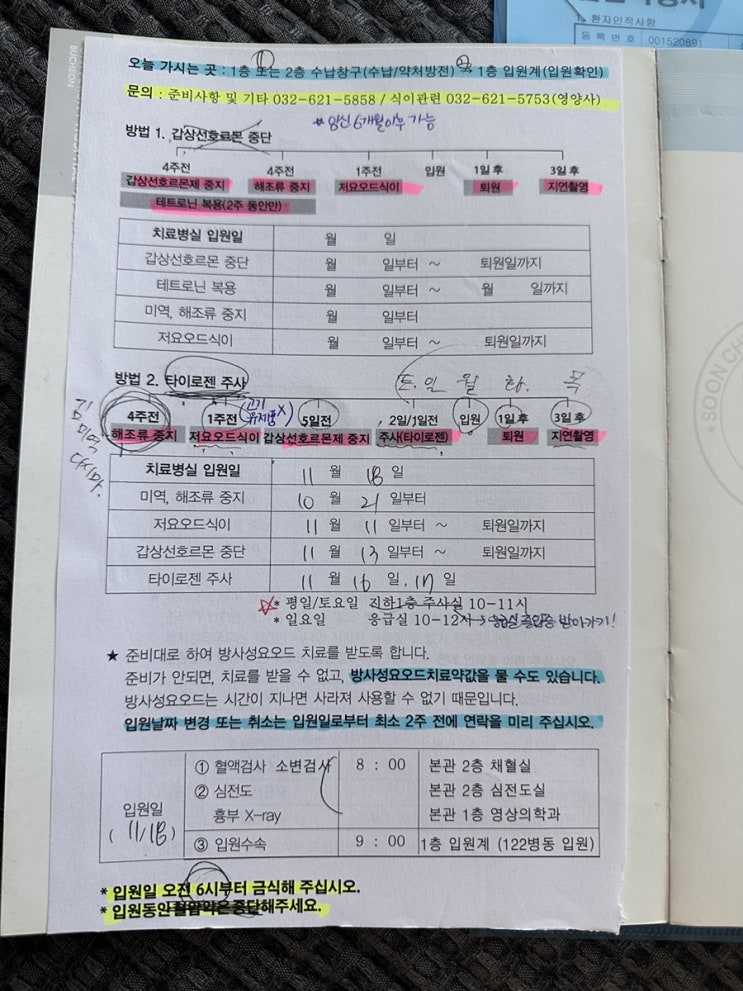 환자인적사항
등 록 번 호 001520891
BUCHEON
SOON CH
오늘 가시는 곳 : 1층 또는 2층 수납창구(수납/약처방전) → 1층 입원계(입원확인)
문의 : 준비사항 및 기타 032-621-5858 / 식이관련 032-621-5753(영양사)
* 임신 6개월이후 가능
방법 1. 갑상선호르몬 중단
4주전 4주전 1주전 입원 1일 후 3일 후
갑상선호르몬제 중지 해조류 중지 저요오드식이 퇴원 지연촬영
테트로닌 복용(2주 동안만)
치료병실 입원일 월 일
갑상선호르몬 중단 월 일부터 ~ 퇴원일까지
테트로닌 복용 월 일부터 ~ 월 일까지
미역, 해조류 중지 월 일부터
저요오드식이 월 일부터 ~ 퇴원일까지
방법 2. 타이로젠 주사
토. 일 월 화. 목
김 미역 다시마.
유제품X
4주전 1주전 5일전 2일/1일전 입원 1일 후 3일 후
해조류 중지 저요오드식이 갑상선호르몬제 중지 주사(타이로젠) 퇴원 지연촬영
치료병실 입원일 11 월 18 일
미역, 해조류 중지 10 월 21 일부터
저요오드식이 11 월 11 일부터 ~ 퇴원일까지
갑상선호르몬 중단 11 월 13 일부터 ~ 퇴원일까지
타이로젠 주사 11 월 16 일, 17 일
* 평일/토요일 지하1층 주사실 10-11시
* 일요일 응급실 10-12시 → 받아가기!
★ 준비대로 하여 방사성요오드 치료를 받도록 합니다.
준비가 안되면, 치료를 받을 수 없고, 방사성요오드치료약값을 물 수도 있습니다.
방사성요오드는 시간이 지나면 사라져 사용할 수 없기 때문입니다.
입원날짜 변경 또는 취소는 입원일로부터 최소 2주 전에 연락을 미리 주십시오.
입원일
( 11/18 )
① 혈액검사 소변검사 8 : 00 본관 2층 채혈실
② 심전도 본관 2층 심전도실
흉부 X-ray 본관 1층 영상의학과
③ 입원수속 9 : 00 1층 입원계 (122병동 입원)
* 입원일 오전 6시부터 금식해 주십시오.
* 입원동안 혈압약은 중단해주세요.